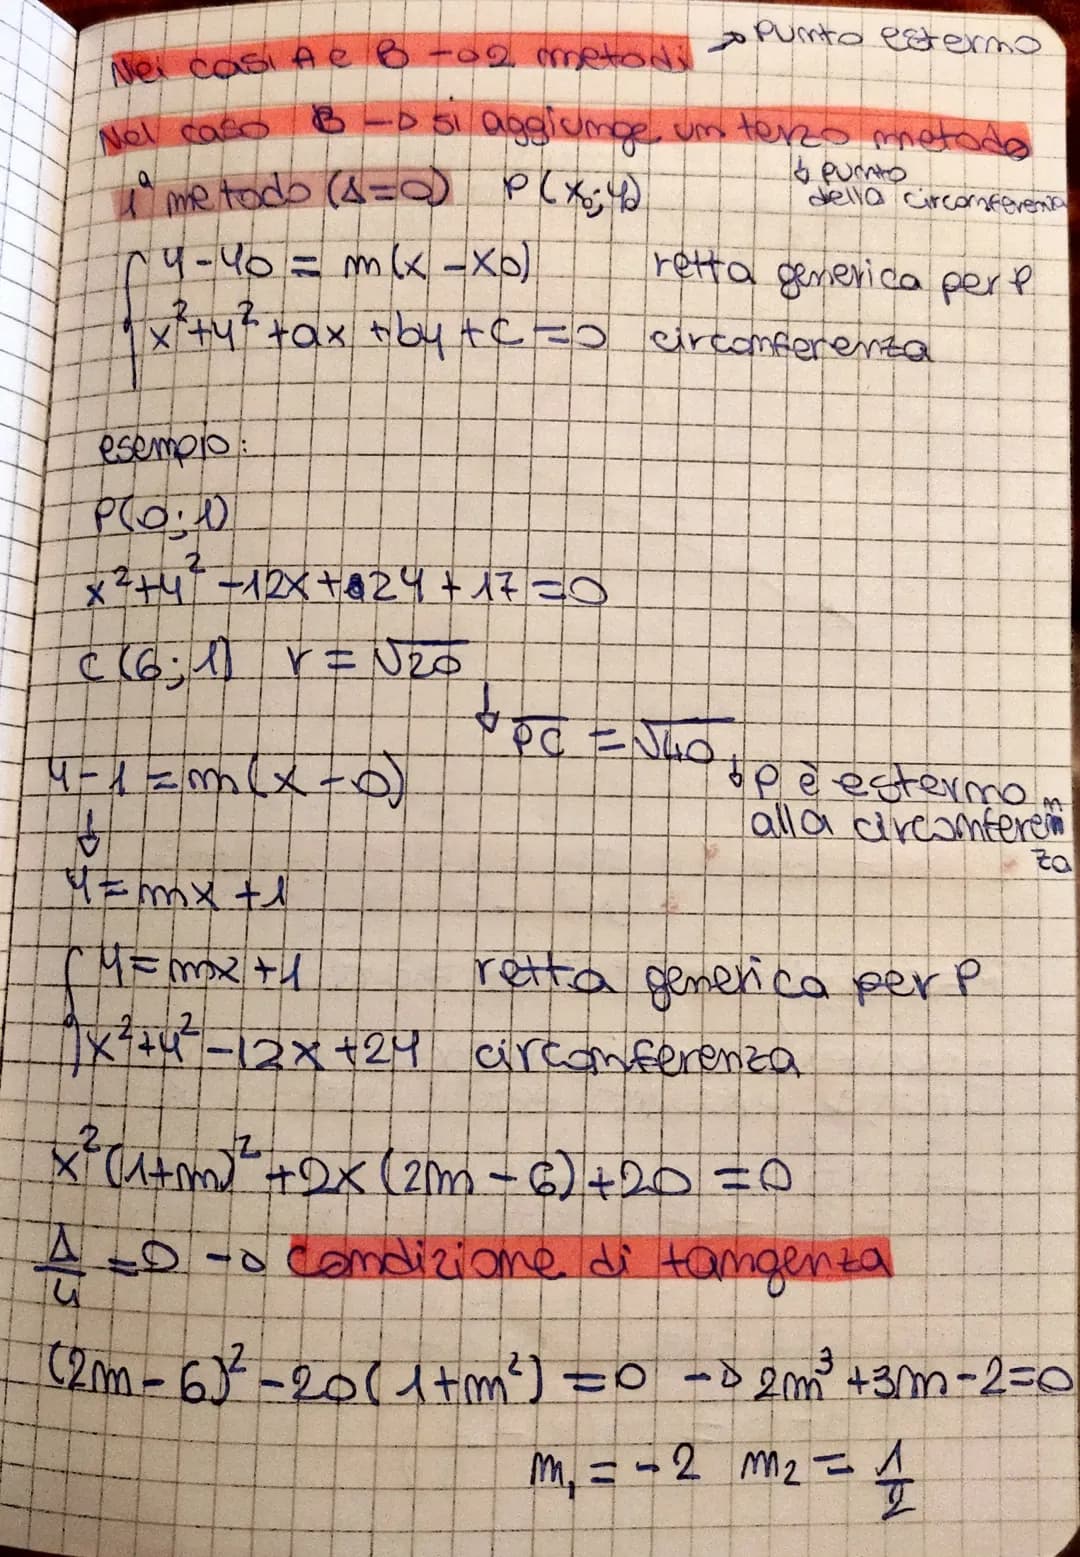 Nei casi A e B → 2 metodi → punto esterno
Nel caso B → si aggiunge un terzo metodo
↓ punto della circonferenza
1° metodo (Δ=0) P(x₀; y₀)
y-y₀ = m(x-x₀) retta generica per P
x²+y²+ax+by+c=0 circonferenza
esempio:
P(0;1)
x²+y²-12x+2y+17=0
C(6;1) r=√20
↓ PC = √40
↓ P è esterno
alla circonferen
za
y-1=m(x-0)
↓
y=mx+1
y=mx+1 retta generica per P
x²+y²-12x+2y circonferenza
x²(1+m)²+2x(2m-6)+20=0
Δ/4=0 → condizione di tangenza
(2m-6)²-20(1+m²)=0 → 2m³+3m-2=0
m₁=-2 m₂=1/2